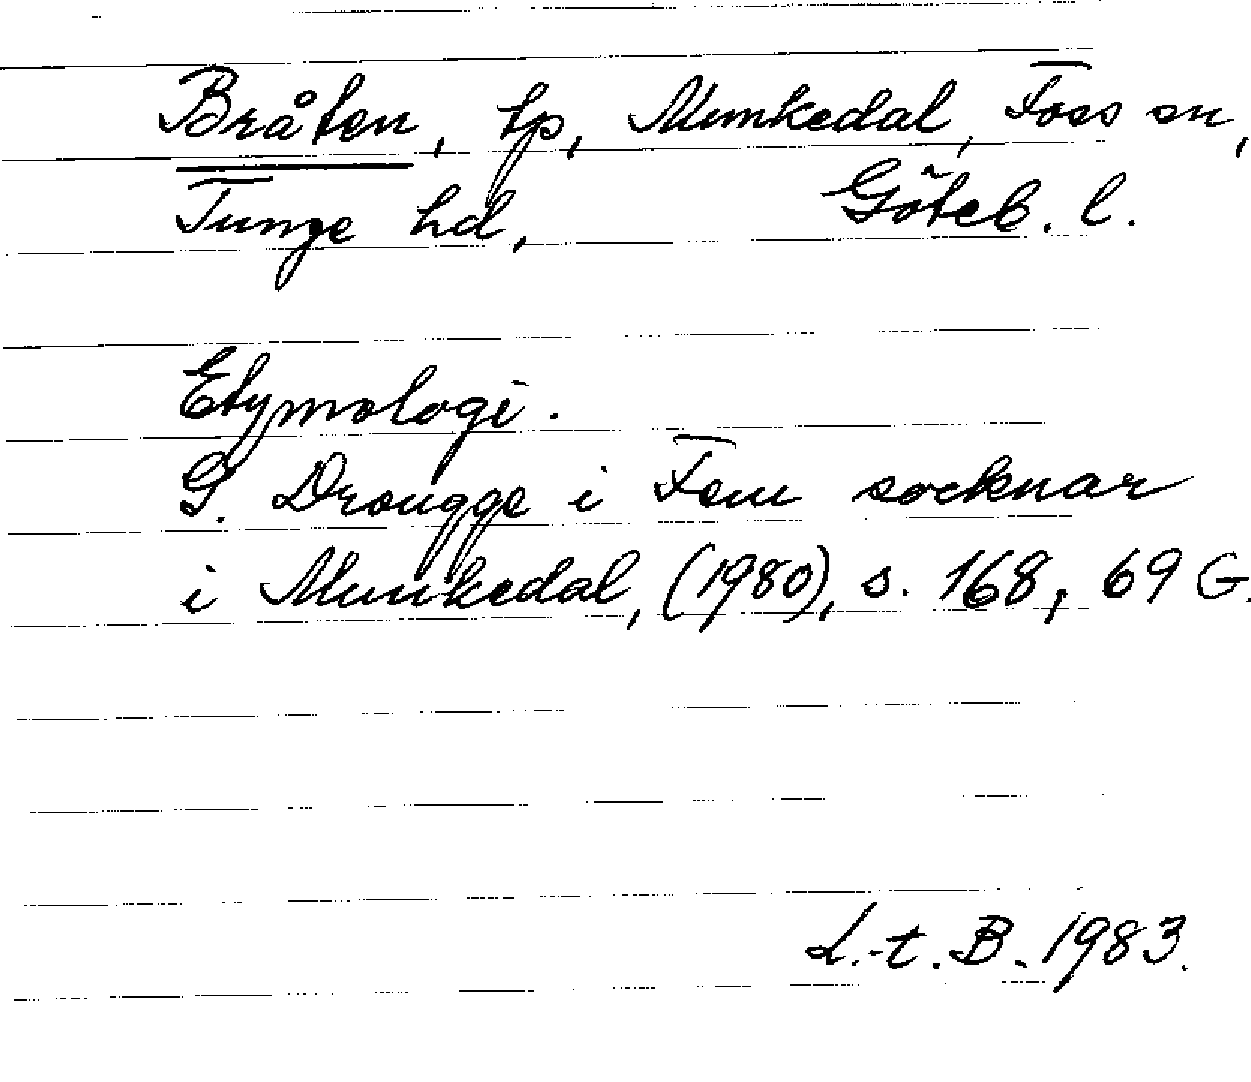 Bråten, tp, Munkedal, Foss sn,
Tunge hd, Göteb. l.
Etymologi.
G. Drougge i Fem socknar
i Munkedal, (1980), s. 168, 69 G.
L.-t. B. 1983.